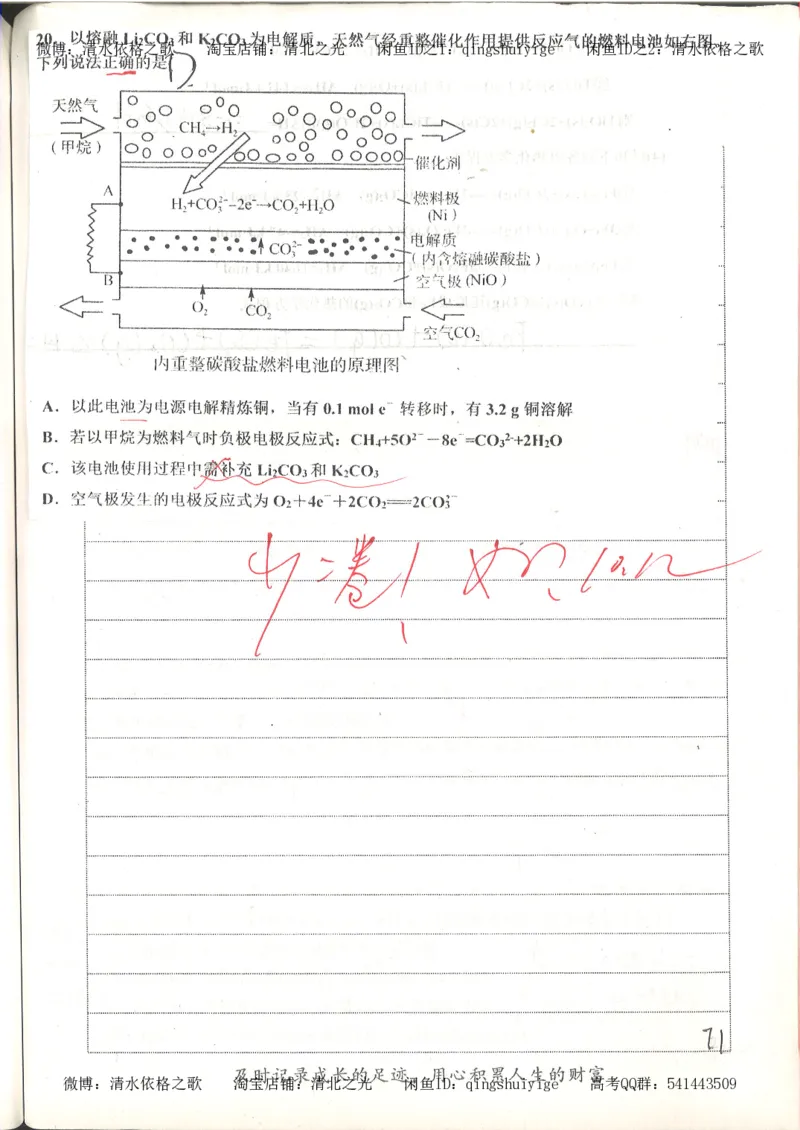 20. 以熔融 Li₂CO₃ 和 K₂CO₃ 为电解质，天然气经重整催化作用提供反应气的燃料电池如右图。
微博：清水依格之歌 淘宝店铺：清北之光 闲鱼ID之1：qingshuiyige 闲鱼ID之2：清水依格之歌
下列说法正确的是 D
天然气
(甲烷)
CH₄→H₂
催化剂
A
H₂+CO₃²⁻−2e⁻→CO₂+H₂O
燃料极
(Ni)
CO₃²⁻
电解质
(内含熔融碳酸盐)
B
空气极(NiO)
O₂ CO₂
空气CO₂
内重整碳酸盐燃料电池的原理图
A．以此电池为电源电解精炼铜，当有 0.1 mol e⁻ 转移时，有 3.2 g 铜溶解
B．若以甲烷为燃料气时负极电极反应式：CH₄+5O²⁻−8e⁻=CO₃²⁻+2H₂O
C．该电池使用过程中需补充 Li₂CO₃ 和 K₂CO₃
D．空气极发生的电极反应式为 O₂＋4e⁻＋2CO₂══2CO₃²⁻
71
及时记录成长的足迹 用心积累人生的财富
微博：清水依格之歌 淘宝店铺：清北之光 闲鱼ID：qingshuiyige 高考QQ群：541443509